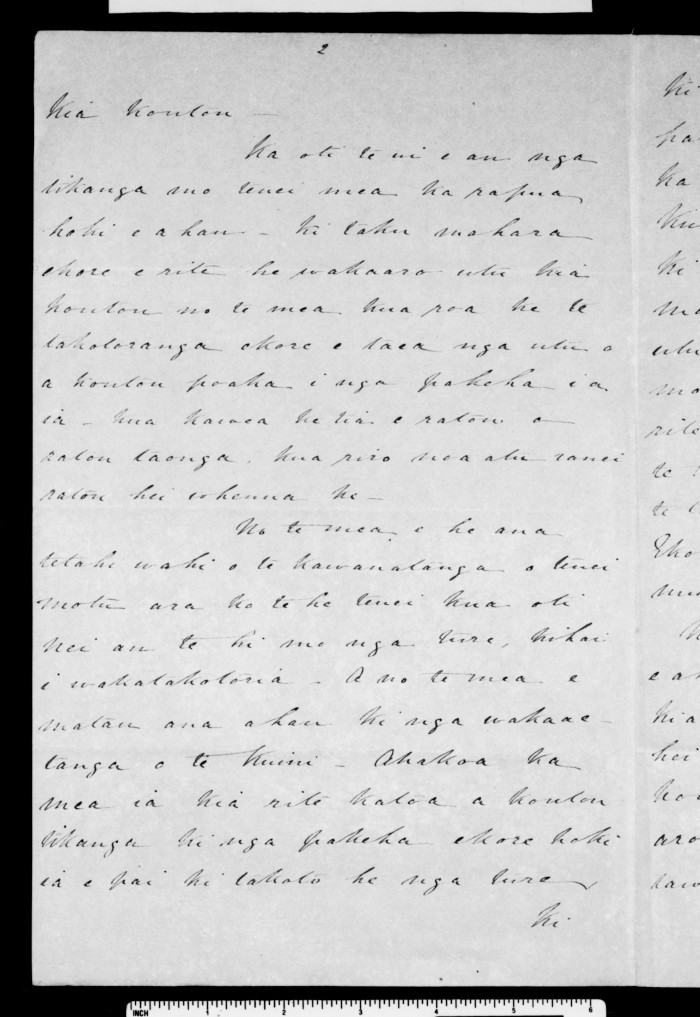 2
Kia Koutou -
Ka oti te ui e au nga
tikanga mo tenei mea ka rapua
hoki e ahau - Ki taku mahara
ekore e rite he wakaaro utu kia
koutou no te mea kua roa ke te
takotoranga ekore e taea nga utu o
a koutou poaka i nga pakeha i a
ia - kua kawea ketia e ratou o
ratou taonga. kua riro noa atu ranei
ratou hei whenua ke -
No te mea e he ana
tetahi wahi o te kawanatanga o tenei
motu ara ko te he tenei kua oti
nei au te ki mo nga ture, kihai
i wakatakotoria - A no te mea e
matau ana ahau ki nga wakaae-
tanga o te Kuini - Ahakoa ka
mea ia kia rite katoa a koutou
tikanga ki nga pakeha ekore hoki
ia e pai ki takoto he nga ture,
Ki
Ki
pa
ka
Ku
Ki
ma
utu
mo
rite
te
te
Eko
mu
e a
kia
hei
ko
aro
taw
INCH 1 2 3 4 5 6